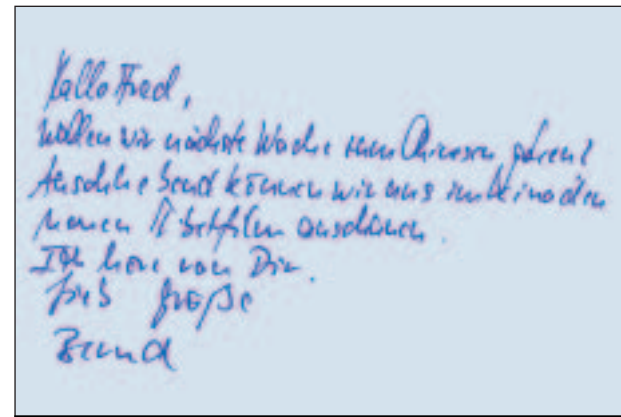 Hallo Fred,
wollen wir nächste Woche zum Chinesen gehen?
Anschließend können wir uns im Kino den
neuen anschauen.
Ich höre von Dir.
Grüße
Bernd